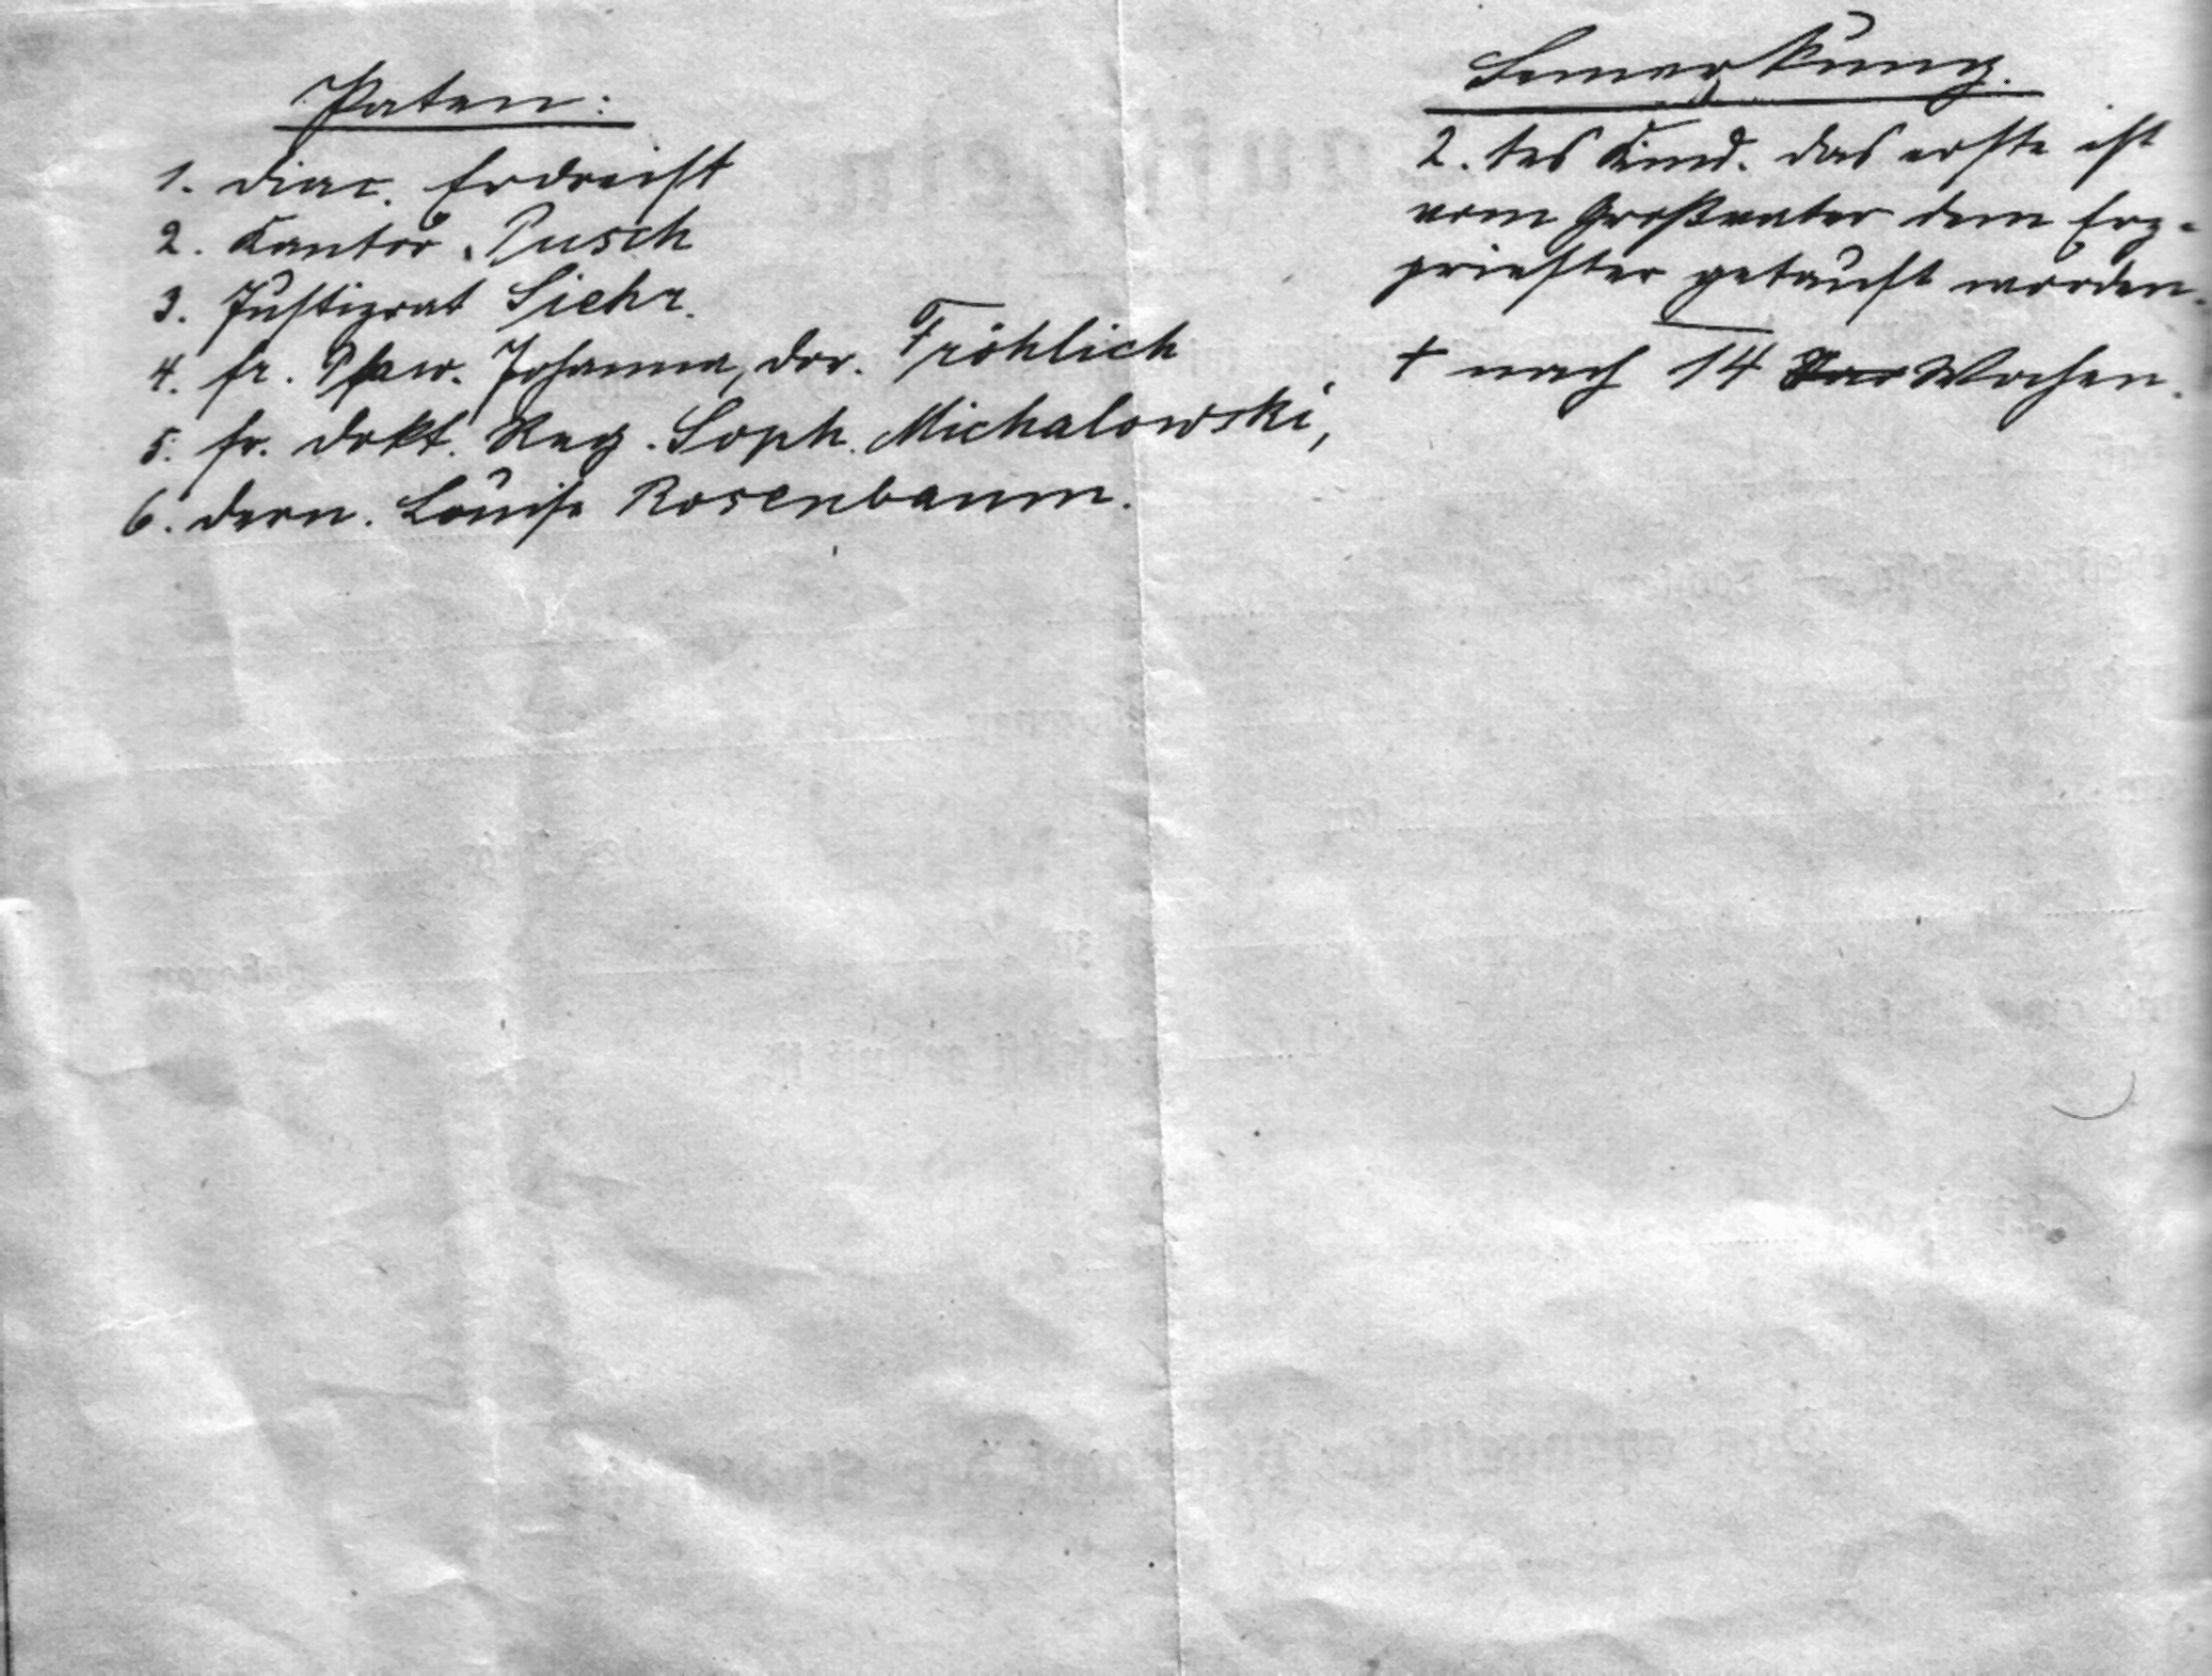 Paten:
1. Diac. Erdreist
2. Kantor Pusch
3. Justizrat Siehr.
4. fr. Pfarr. Johanna, Dor. Fröhlich
5. fr. Dokt. Reg. Soph. Michalowski,
6. Dem. Louise Rosenbaum.
Bemerkung.
2. tes Kind. Das erste ist
vom Großvater dem Erz-
priester getauft worden.
† nach 14 Wochen.